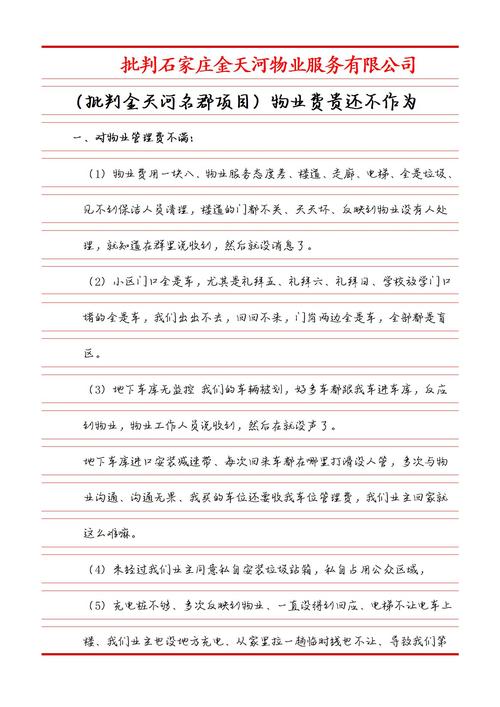 批判石家庄金天河物业服务有限公司
（批判金天河名郡项目）物业费贵还不作为
一、对物业管理费不满：
（1）物业费用一块八、物业服务态度差、楼道、走廊、电梯、全是垃圾、
见不到保洁人员清理，楼道的门都不关、天天坏、反映到物业没有人处
理，就知道在群里说收到，然后就没消息了。
（2）小区门口全是车，尤其是礼拜五、礼拜六、礼拜日、学校放学门口
堵的全是车，我们出出不去，回回不来，门岗两边全是车，全部都是盲
区。
（3）地下车库无监控 我们的车辆被划，好多车都跟我车进车库，反应
到物业，物业工作人员说收到，然后在就没声了。
地下车库进口安装减速带、每次回来车都在哪里打滑没人管，多次与物
业沟通、沟通无果、我买的车位还要收我车位管理费，我们业主回家就
这么难嘛。
（4）未经过我们业主同意私自安装垃圾站箱，私自占用公众区域，
（5）充电桩不够、多次反映到物业、一直没得到回应、电梯不让电车上
楼、我们业主也没地方充电、从家里拉一趟临时线也不让、导致我们第